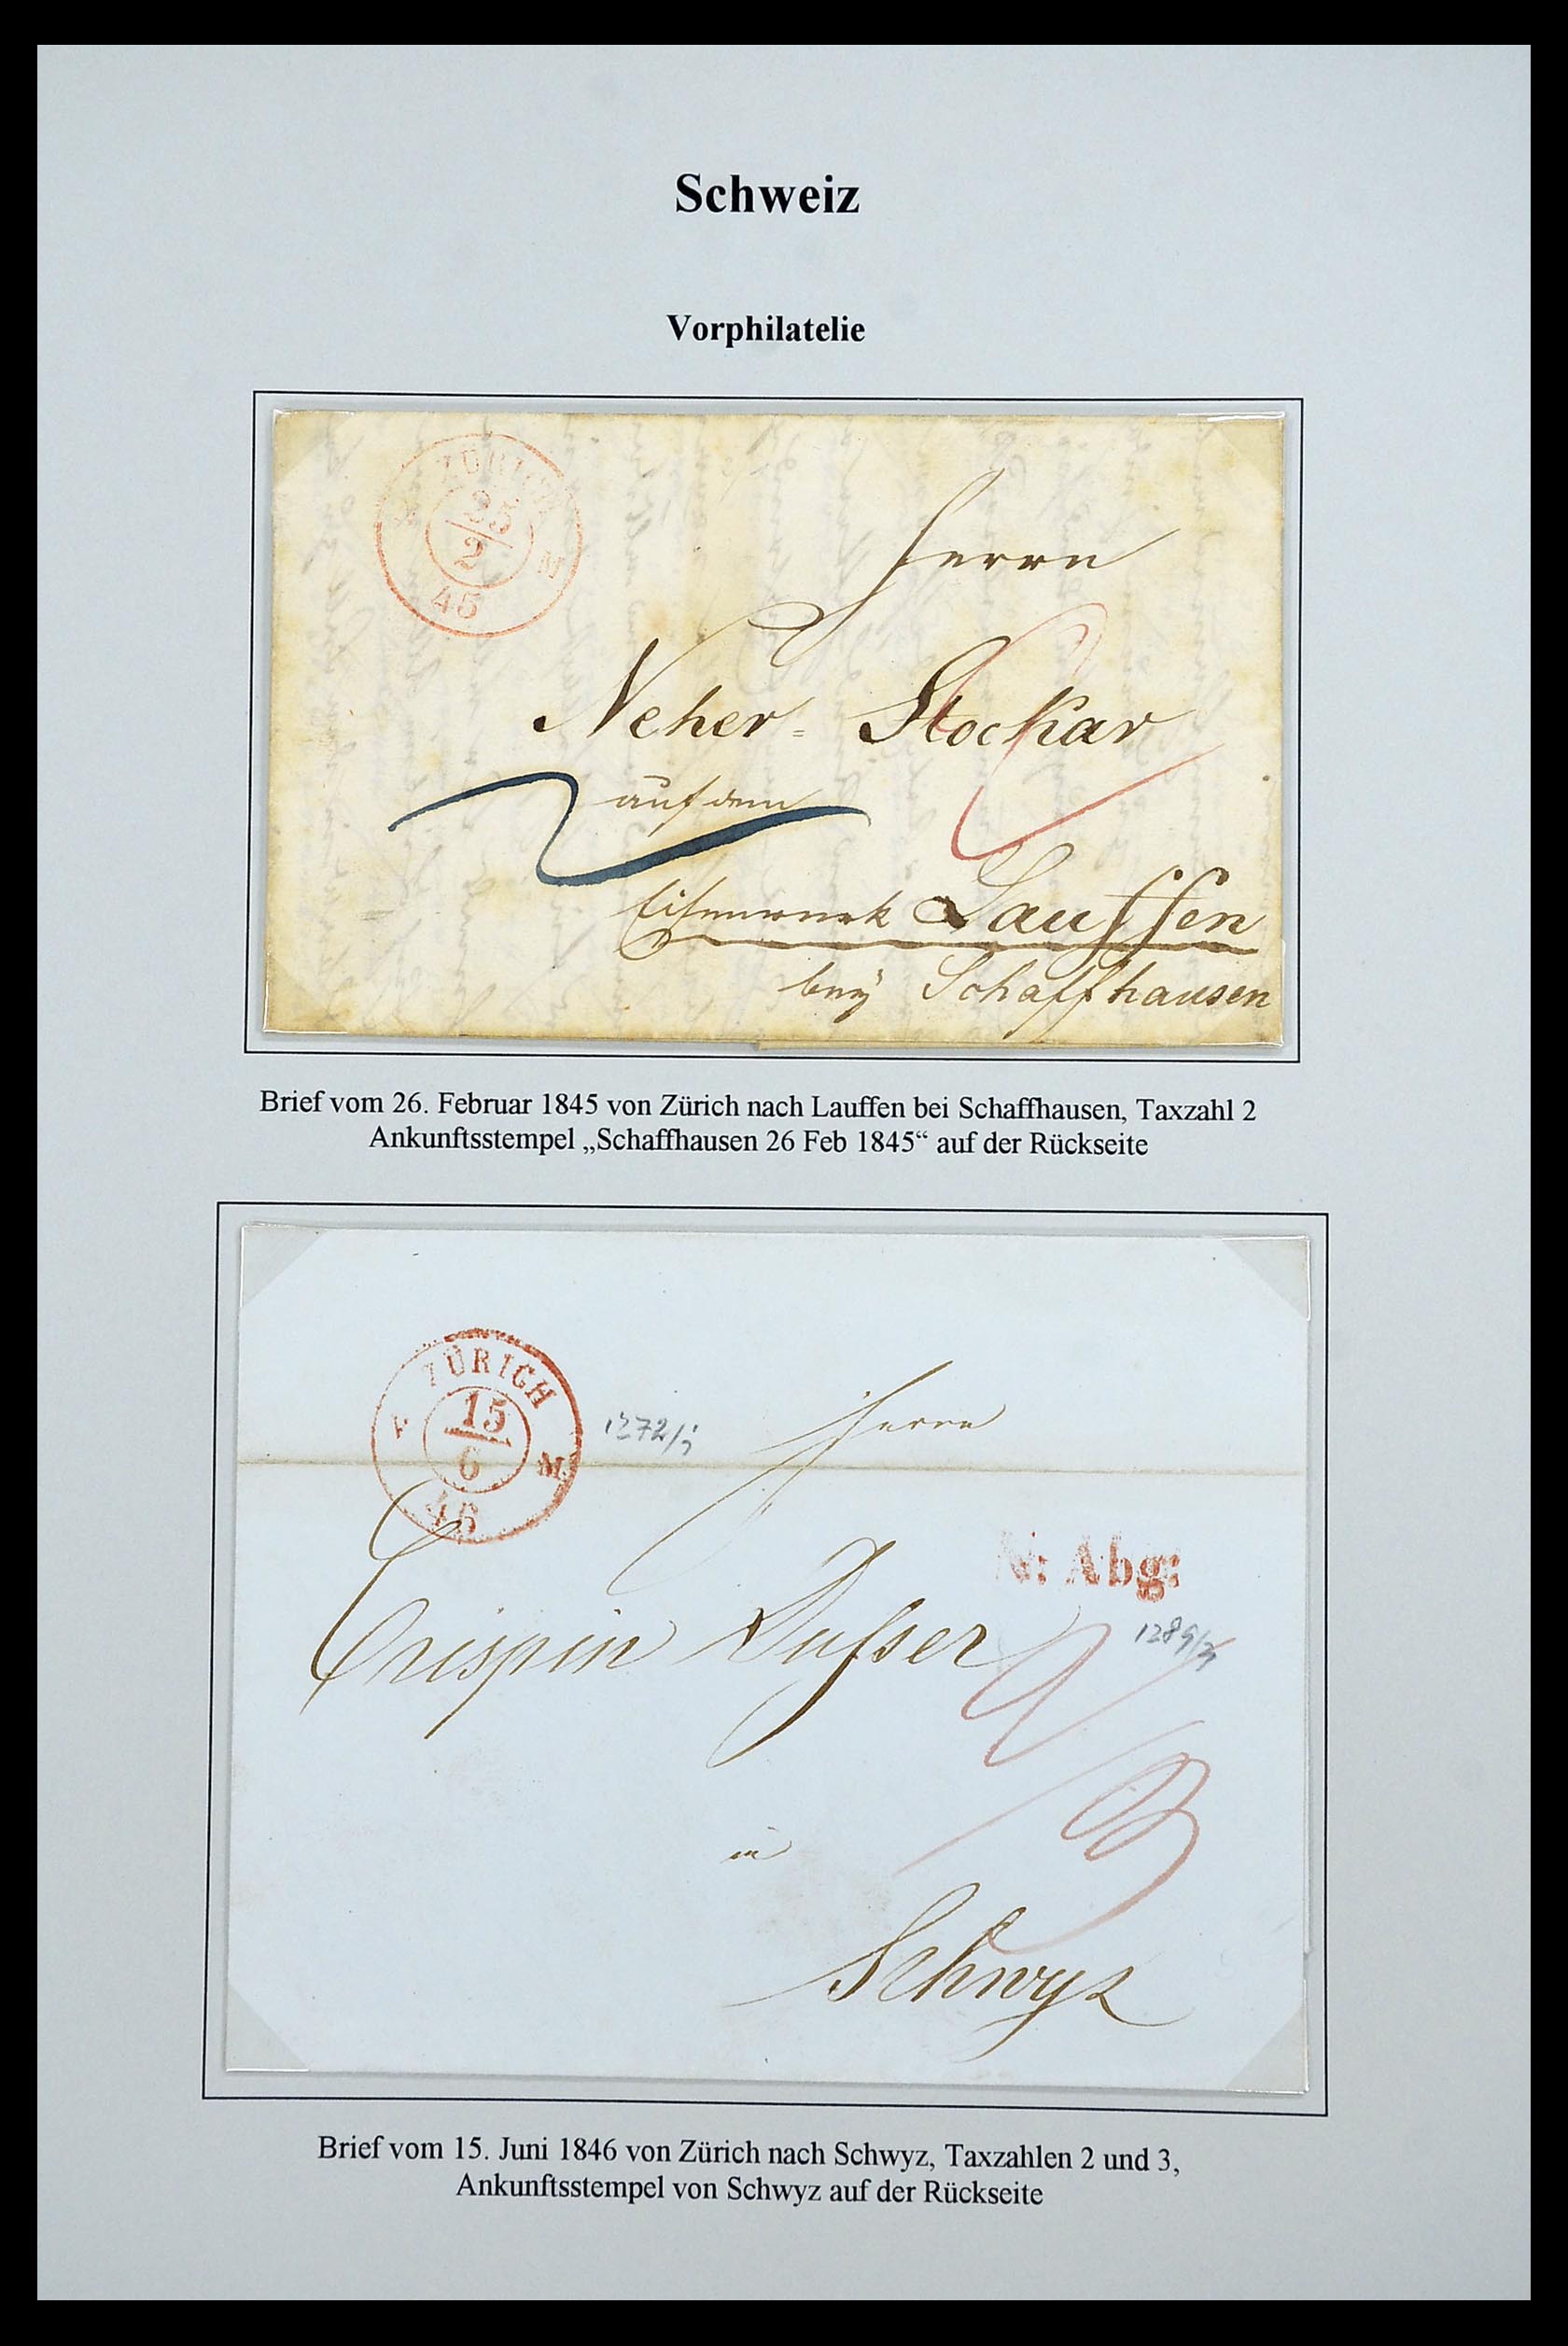 Schweiz
Vorphilatelie
ZÜRICH
25
2
M
45
Herrn
Neher= Stockar
auf dem
2
Eisenwerk Lauffen
bey Schaffhausen
Brief vom 26. Februar 1845 von Zürich nach Lauffen bei Schaffhausen, Taxzahl 2
Ankunftsstempel „Schaffhausen 26 Feb 1845“ auf der Rückseite
ZÜRICH
15
6
M
46
Herrn
N: Abg:
Crispin
in
Schwyz
Brief vom 15. Juni 1846 von Zürich nach Schwyz, Taxzahlen 2 und 3,
Ankunftsstempel von Schwyz auf der Rückseite